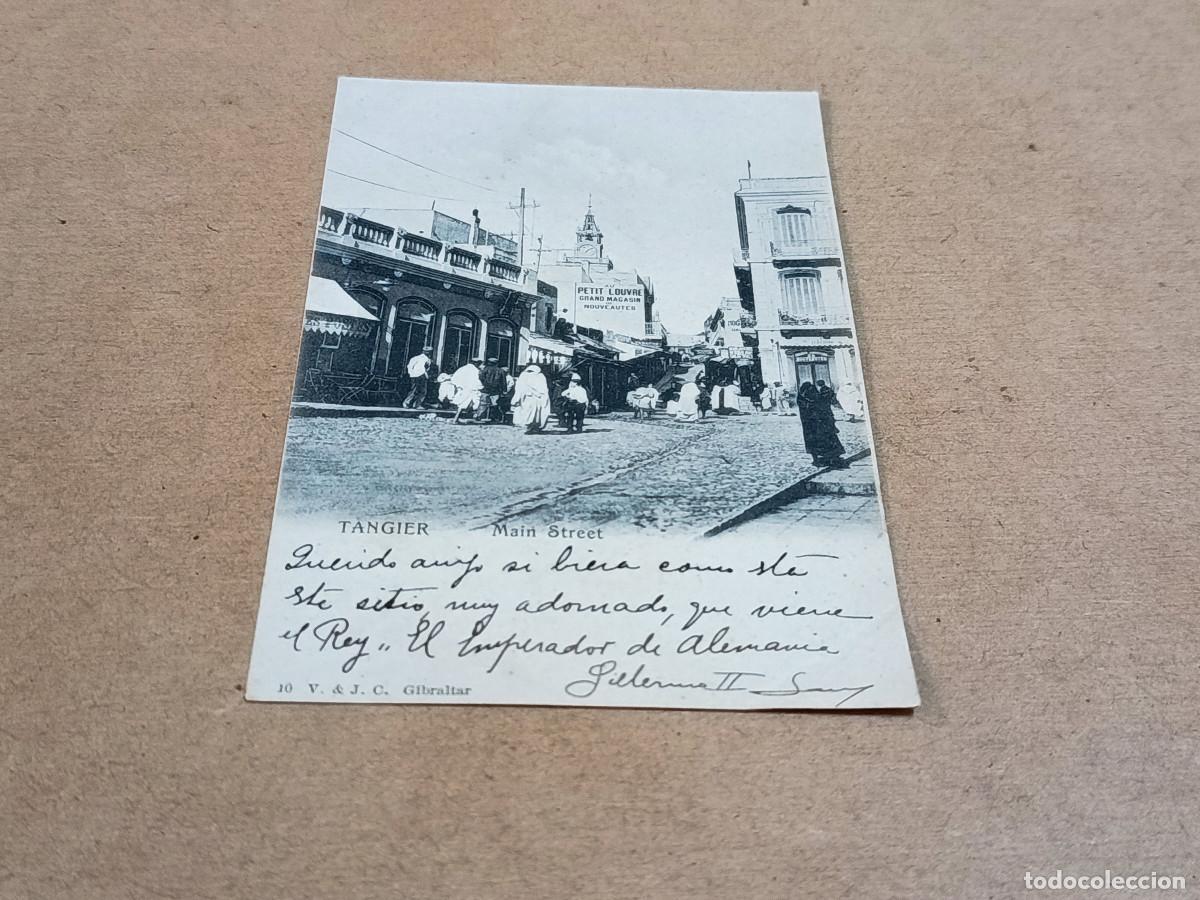 AU
PETIT LOUVRE
GRAND MAGASIN
DE
NOUVEAUTES
NOUVEAUTES
TANGIER Main Street
Querido amigo si biera como sta
ste sitio, muy adornado, que viene
el Rey,, El Emperador de Alemania
Gillermo II
10 V. & J. C. Gibraltar
todocoleccion